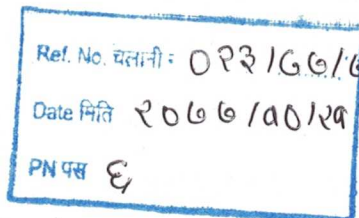 Ref. No. चलानी: ०२३/७७/७
Date मिति २०७७/१०/२१
PN पस ६